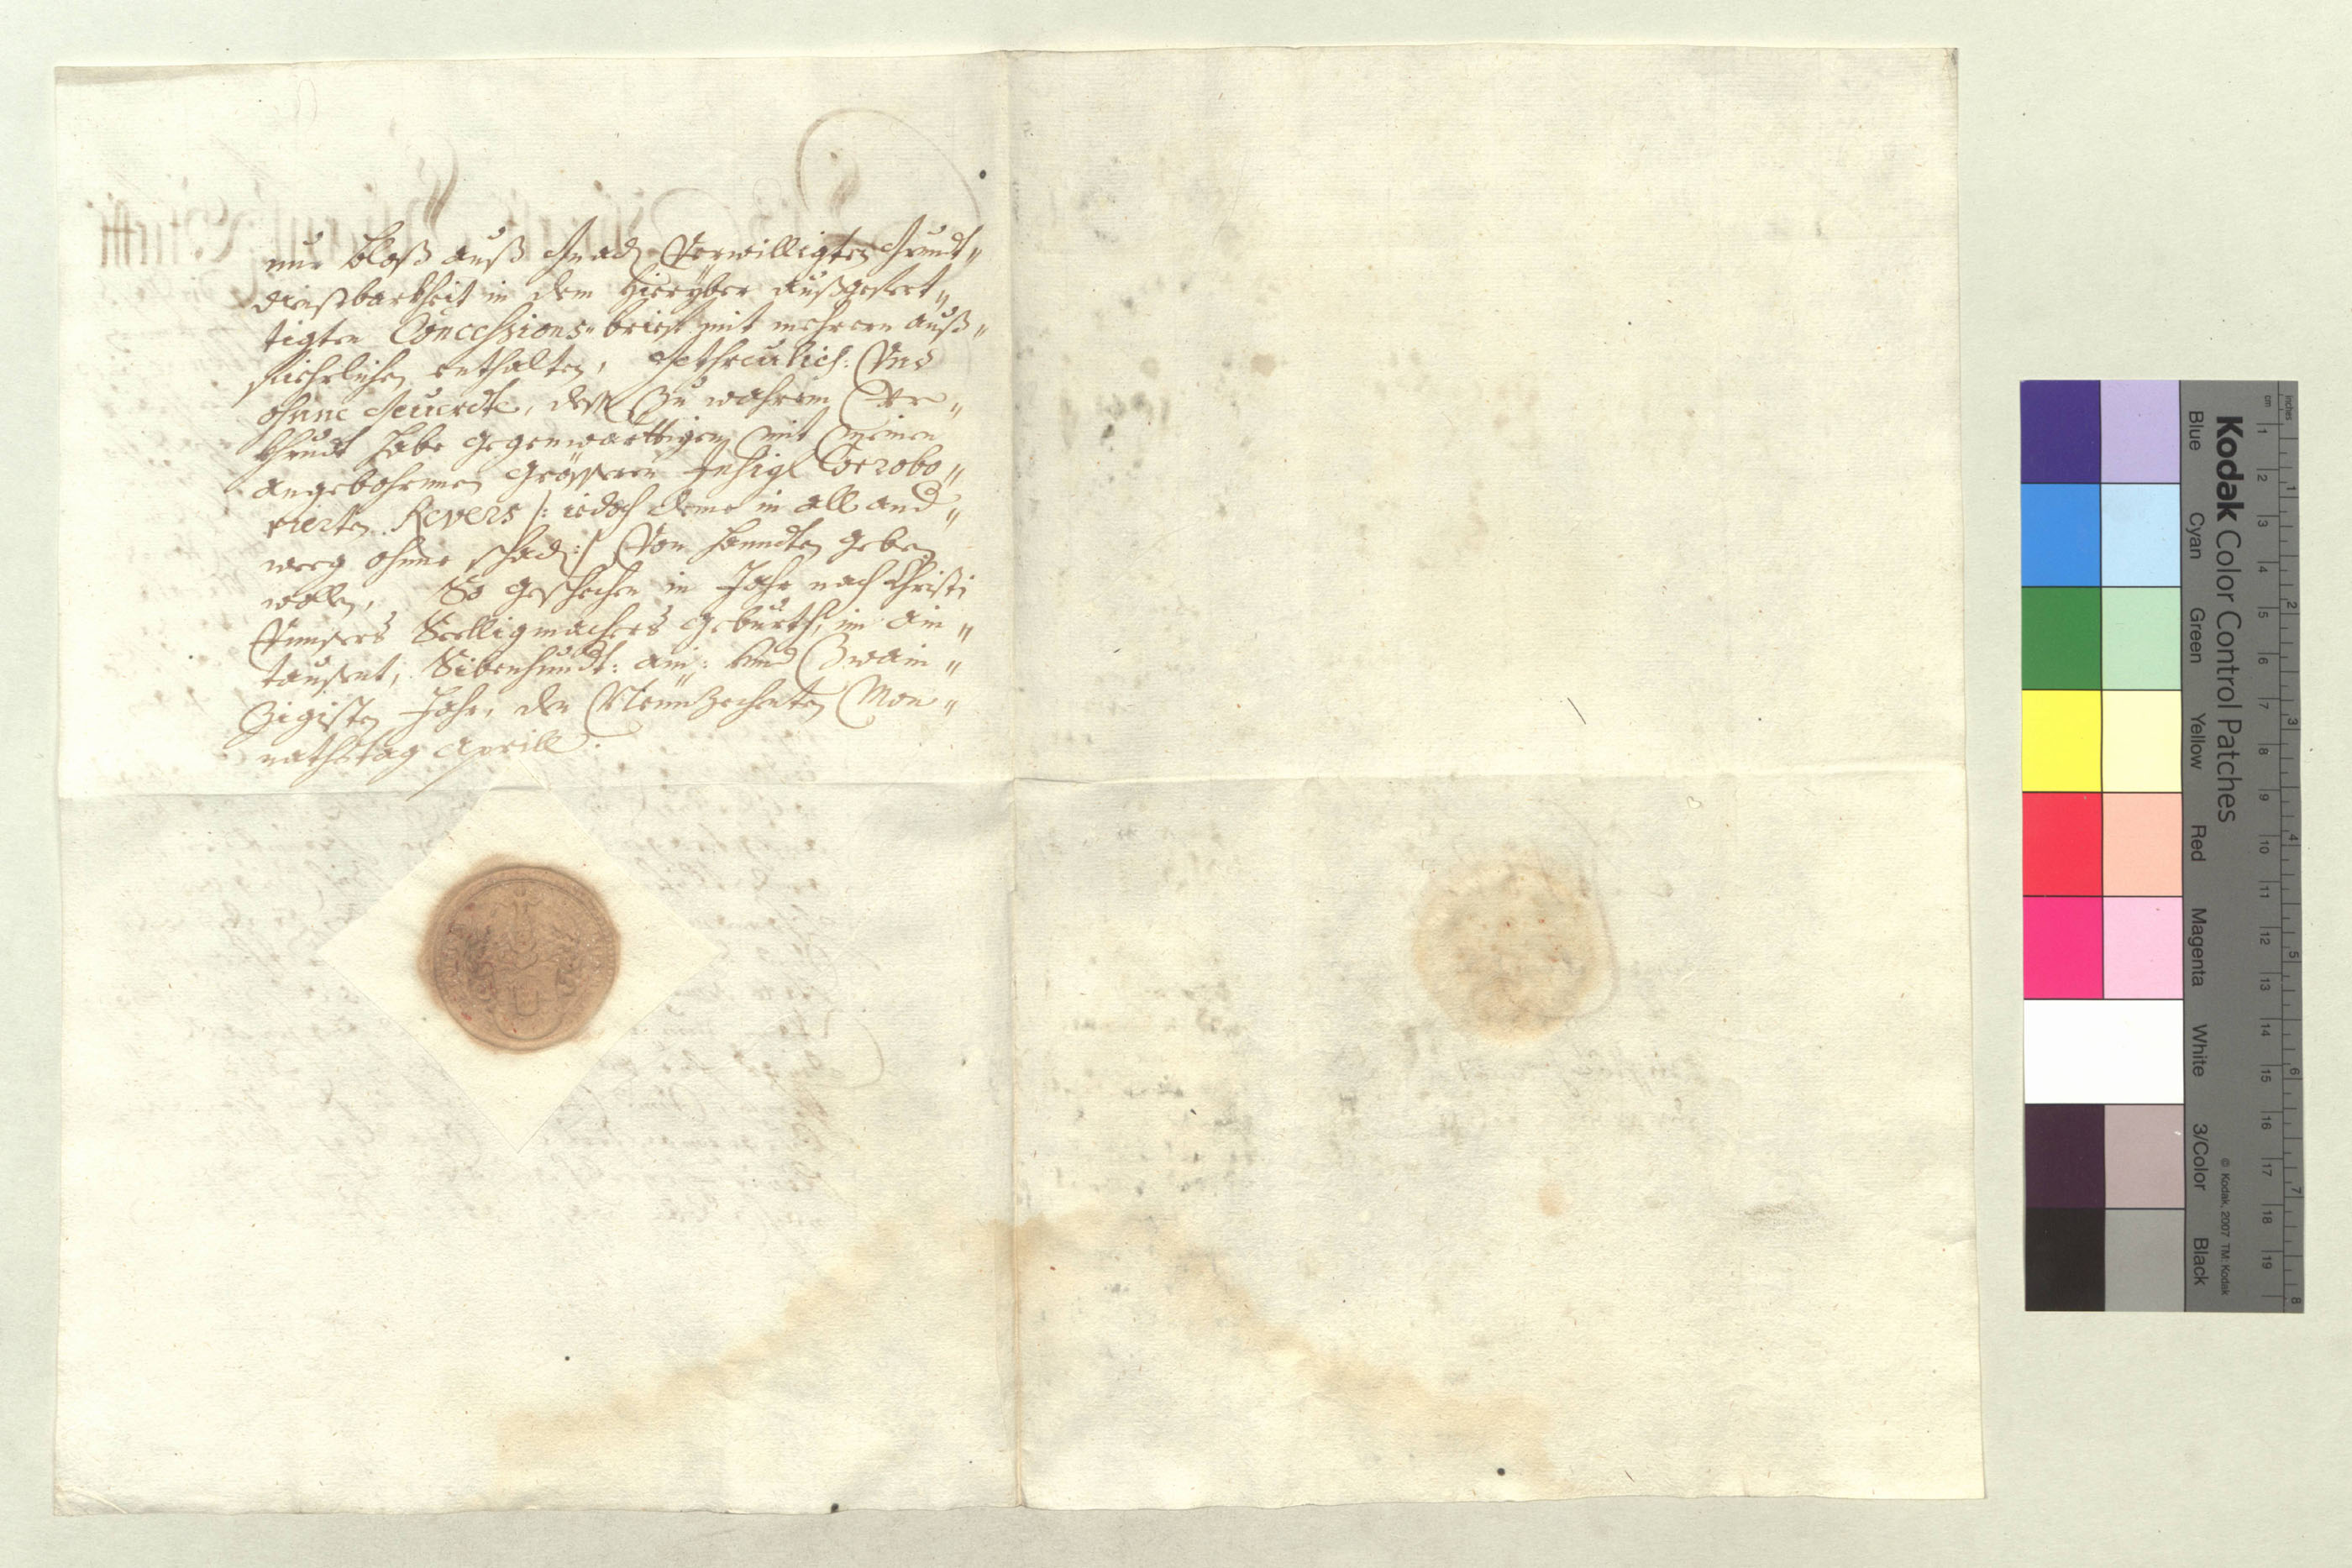 nur bloß auß Gnad Verwilligten Grundt„
dienstbarkheit in dem hierüber außgefert„
tigten Concessions„brieff mit mehrern auß„
fiehrlichen enthalten, Gethreulich: Vnd
ohne Geuerdte, deß Zu wahrem Vr„
khundt habe gegenwärttigen mit meinen
angebohrnen grösseren Insigl Corrobo„
rierten Revers /: iedoch deme in all and„
weeg ohne schad :/ Von handten geben
wollen, So geschehen in Jahr nach Christi
Vnnsers Seelligmachers geburth, im ain„
taussent, Sibenhundt: ain: und Zwain„
Zigisten Jahr, den Neünzechenten Mon„
nathstag Aprill.
Kodak Color Control Patches
Blue Cyan Green Yellow Red Magenta White 3/Color Black
© Kodak, 2007 TM: Kodak
inches 1 2 3 4 5 6 7 8
cm 1 2 3 4 5 6 7 8 9 10 11 12 13 14 15 16 17 18 19